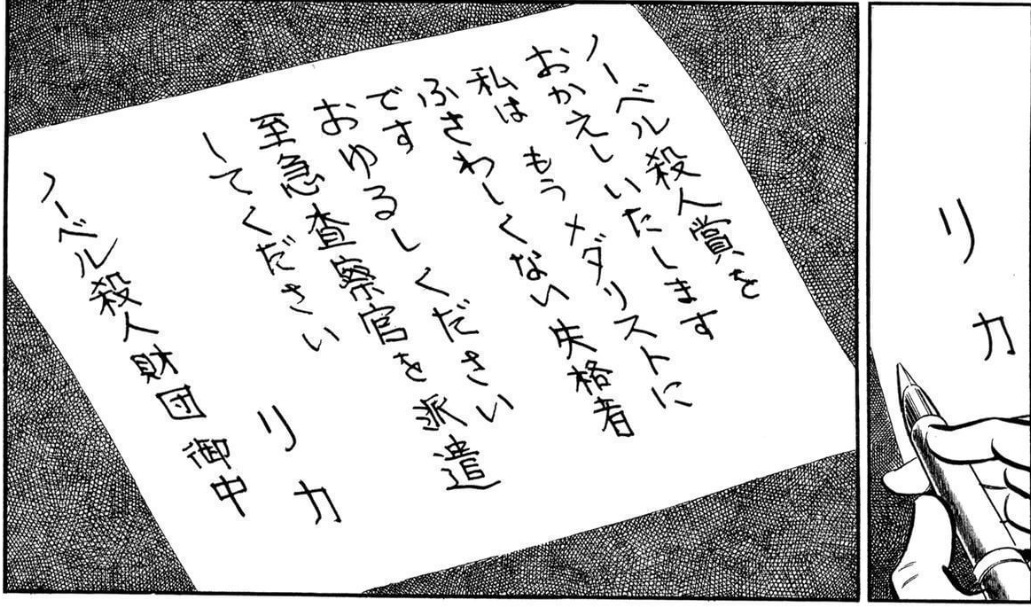 リカ
ノーベル殺人賞を
おかえしいたします
私は もうメダリストに
ふさわしくない失格者
です
おゆるしください
至急査察官を派遣
してください
リカ
ノーベル殺人財団 御中